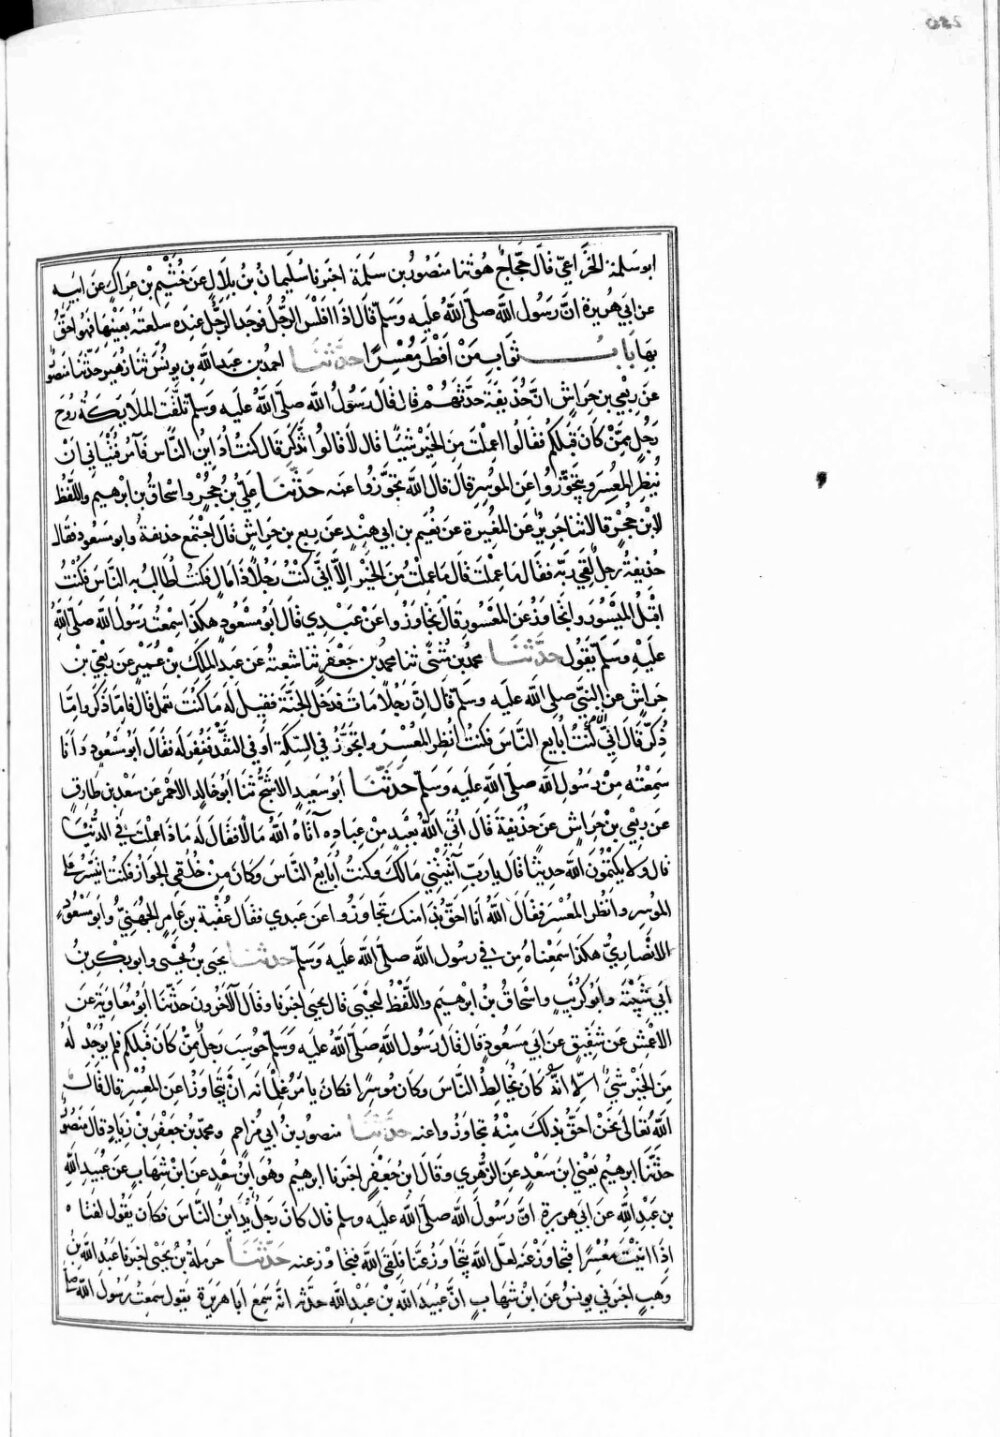 ابو سلمة الخزاعي قال حجاج هو ثنا منصور بن سلمة اخبرنا سليمان بن بلال عن خثيم بن عراك عن ابيه
عن ابي هريرة ان رسول الله صلى الله عليه وسلم قال اذا افلس الرجل فوجد الرجل عنده سلعته بعينها فهو احق
بها باب ثواب من انظر معسرا حدثنا احمد بن عبد الله بن يونس ثنا زهير حدثنا منصور
عن ربعي بن حراش ان حذيفة حدثهم قال قال رسول الله صلى الله عليه وسلم تلقت الملايكة روح
رجل ممن كان قبلكم فقالوا اعملت من الخير شيئا قال لا قالوا تذكر قال كنت اداين الناس فآمر فتياني ان
ينظر المعسر ويتجوزوا عن الموسر قال قال الله تجوزوا عنه حدثنا علي بن حجر واسحاق بن ابرهيم واللفظ
لابن حجر قالا ثنا جرير عن المغيرة عن نعيم بن ابي هند عن ربعي بن حراش قال اجتمع حذيفة وابو مسعود فقال
حذيفة رجل لقي ربه فقال ما عملت قال ما عملت من الخير الا اني كنت رجلا ذا مال فكنت اطالب به الناس فكنت
اقبل الميسور واتجاوز عن المعسور قال تجاوزوا عن عبدي قال ابو مسعود هكذا سمعت رسول الله صلى الله
عليه وسلم يقول حدثنا محمد بن مثنى ثنا محمد بن جعفر ثنا شعبة عن عبد الملك بن عمير عن ربعي بن
حراش عن النبي صلى الله عليه وسلم قال ان رجلا مات فدخل الجنة فقيل له ما كنت تعمل قال فاما ذكر واما
ذكر قال اني كنت ابايع الناس فكنت انظر المعسر واتجوز في السكة او في النقد فغفر له فقال ابو مسعود وانا
سمعته من رسول الله صلى الله عليه وسلم حدثنا ابو سعيد الاشج ثنا ابو خالد الاحمر عن سعد بن طارق
عن ربعي بن حراش عن حذيفة قال اتي الله بعبد من عباده آتاه الله مالا فقال له ماذا عملت في الدنيا
قال ولا يكتمون الله حديثا قال يا رب آتيتني مالك وكنت ابايع الناس وكان من خلقي الجواز فكنت اتيسر على
الموسر وانظر المعسر فقال الله انا احق بذا منك تجاوزوا عن عبدي فقال عقبة بن عامر الجهني وابو مسعود
الانصاري هكذا سمعناه من في رسول الله صلى الله عليه وسلم حدثنا يحيى بن يحيى وابو بكر بن
ابي شيبة وابو كريب واسحاق بن ابرهيم واللفظ ليحيى قال يحيى اخبرنا وقال الآخرون حدثنا ابو معاوية عن
الاعمش عن شقيق عن ابي مسعود قال قال رسول الله صلى الله عليه وسلم حوسب رجل ممن كان قبلكم فلم يوجد له
من الخير شي الا انه كان يخالط الناس وكان موسرا فكان يامر غلمانه ان يتجاوزا عن المعسر قال قال
الله تعالى نحن احق بذلك منه تجاوزوا عنه حدثنا منصور بن ابي مزاحم ومحمد بن جعفر بن زياد قال منصور
حدثنا ابرهيم يعني ابن سعد عن الزهري وقال ابن جعفر اخبرنا ابرهيم وهو ابن سعد عن ابن شهاب عن عبيد الله
بن عبد الله عن ابي هريرة ان رسول الله صلى الله عليه وسلم قال كان رجل يداين الناس فكان يقول لفتاه
اذا اتيت معسرا فتجاوز عنه لعل الله يتجاوز عنا فلقي الله فتجاوز عنه حدثنا حرملة بن يحيى اخبرنا عبد الله بن
وهب اخبرني يونس عن ابن شهاب ان عبيد الله بن عبد الله حدثه انه سمع ابا هريرة يقول سمعت رسول الله صلى